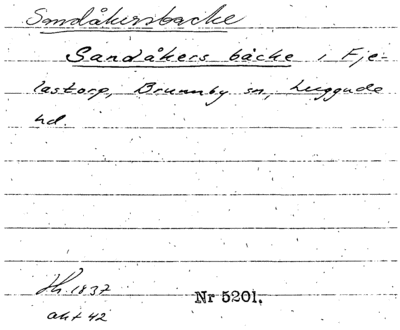 Sandåkersbacke
Sandåkers bäcke i Fje-
lastorp, Brunnby sn, Luggude
hd.
Hk. 1837
akt 42
Nr 5201.